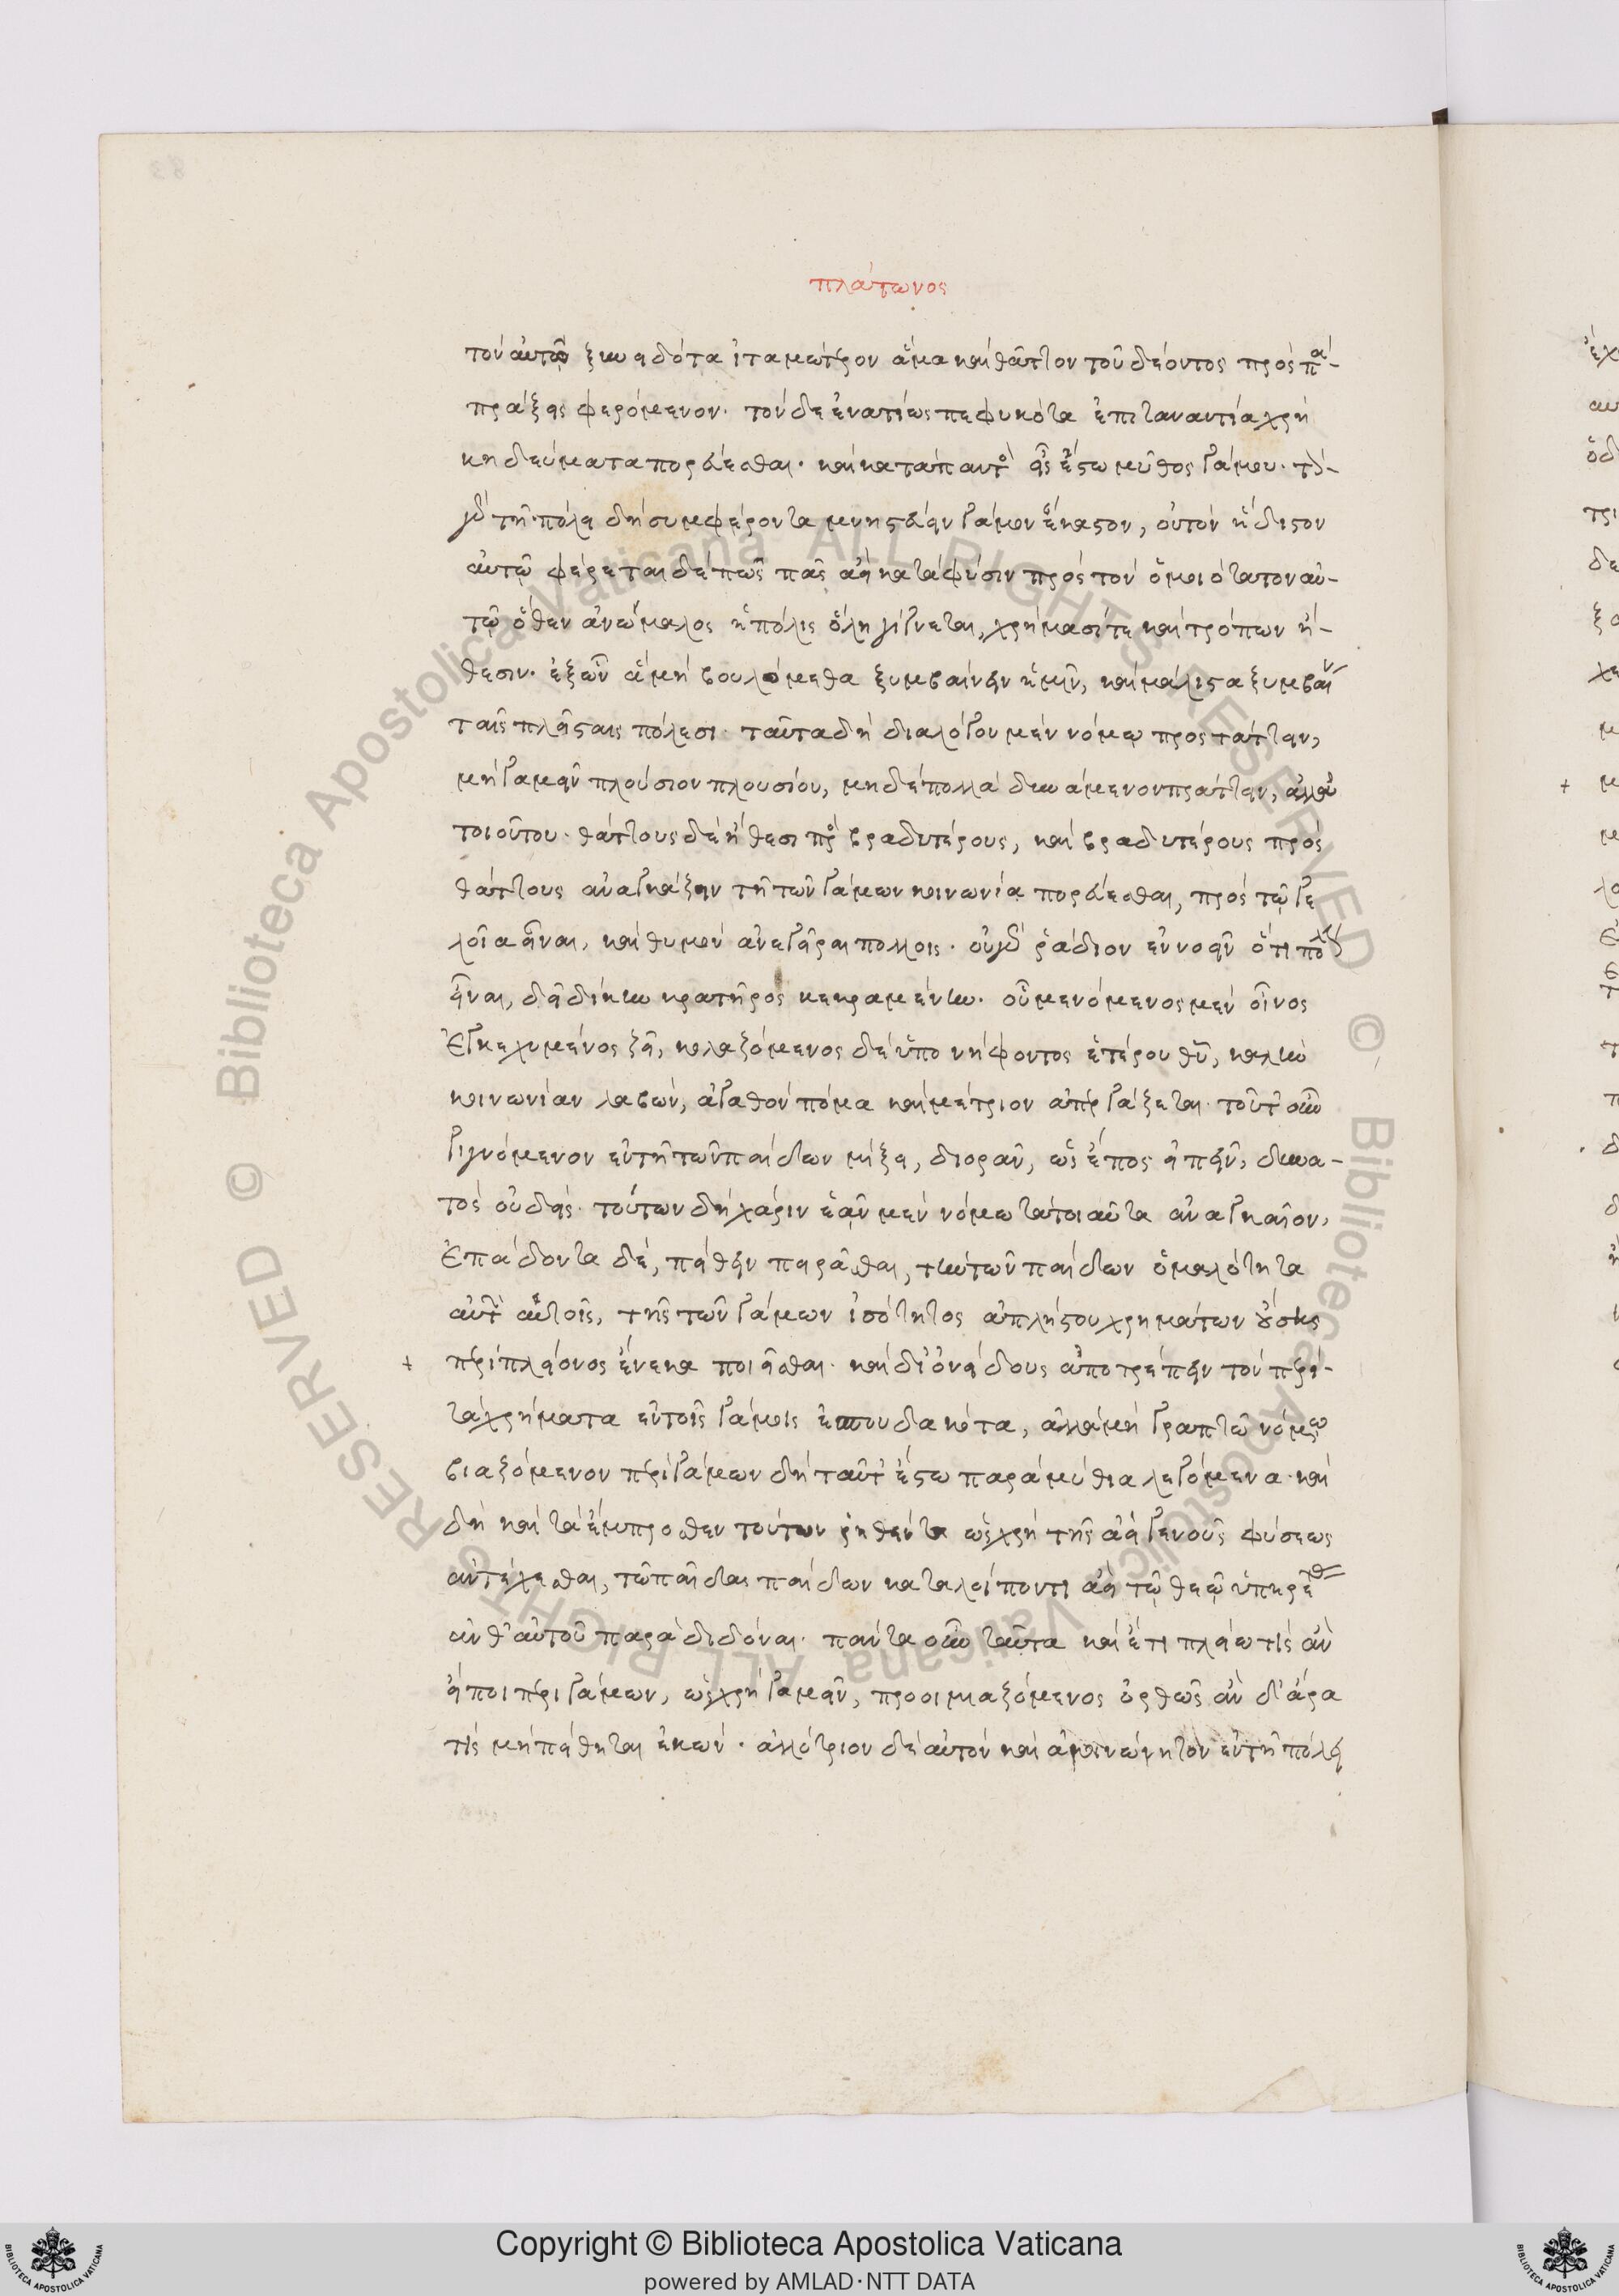 πλάτωνος
τὸν αὑτῷ ξυνειδότα ἰταμώτερον ἅμα καὶ θᾶττον τοῦ δέοντος πρὸς πά-
πράξεις φερόμενον· τὸν δὲ ἐναντίως πεφυκότα ἐπὶ τἀναντία χρὴ
κηδεύματα πορεύεσθαι· καὶ κατὰ παντὸς εἷς ἔστω μῦθος γάμου· τὸ-
γὰρ τῆ πόλει δὴ συμφέροντα μνηστεύειν γάμον ἕκαστον, οὐ τὸν ἥδιστον
αὑτῷ φέρεται δέ πως πᾶς ἀεὶ κατὰ φύσιν πρὸς τὸν ὁμοιότατον αὑ-
τῷ ὅθεν ἀνώμαλος ἡ πόλις ὅλη γίγνεται, χρήμασί τε καὶ τρόπων ἤ-
θεσιν· ἐξ ὧν ἃ μὴ βουλόμεθα ξυμβαίνειν ἡμῖν, καὶ μάλιστα ξυμβαίν
ταῖς πλείσταις πόλεσι· ταῦτα δὴ διὰ λόγου μὲν νόμῳ προστάττειν,
μὴ γαμεῖν πλούσιον πλουσίου, μηδὲ πολλὰ δυνάμενον πράττειν, ἄλλου
τοιούτου· θάττους δὲ ἤθεσι πρὸς βραδυτέρους, καὶ βραδυτέρους πρὸς
θάττους ἀναγκάζειν τῆ τῶν γάμων κοινωνία πορεύεσθαι, πρὸς τῷ γε
λοῖα εἶναι, καὶ θυμὸν ἀνεγεῖραι πολλοῖς· οὐ γὰρ ῥάδιον ἐννοεῖν ὅτι πόλιν
εἶναι, δεῖ δίκην κρατῆρος κεκραμένην· οὗ μενόμενος μὲν οἶνος
ἐγκεχυμένος ζεῖ, κολαζόμενος δὲ ὑπὸ νήφοντος ἑτέρου θεοῦ, καλὴν
κοινωνίαν λαβών, ἀγαθὸν πόμα καὶ μέτριον ἀπεργάζεται· τοῦτ' οὖν
γιγνόμενον ἐν τῆ τῶν παίδων μίξει, διορᾶν, ὡς ἔπος εἰπεῖν, δυνα-
τὸς οὐδείς· τούτων δὴ χάριν ἐᾶν μὲν νόμω τὰ τοιαῦτα ἀναγκαῖον,
ἐπάδοντα δέ, πείθειν πειρᾶσθαι, τὴν τῶν παίδων ὁμαλότητα
αὐτῶν αὑτοῖς, τῆς τῶν γάμων ἰσότητος ἀπλήστου χρημάτων οὔσης
περὶ πλείονος ἕνεκα ποιεῖσθαι· καὶ δι' ὀνείδους ἀποτρέπειν τὸν περὶ-
τὰ χρήματα ἐν τοῖς γάμοις ἐσπουδακότα, ἀλλὰ μὴ γραπτῶ νόμῳ
βιαζόμενον περὶ γάμων δὴ ταῦτ' ἔστω παραμύθια λεγόμενα· καὶ
δὴ καὶ τὰ ἔμπροσθεν τούτων ῥηθέντα ὡς χρὴ τῆς ἀειγενοῦς φύσεως
ἀντέχεσθαι, τῶ παῖδας παίδων καταλείποντι ἀεὶ τῷ θεῷ ὑπηρέτας
ἀνθ' αὑτοῦ παραδιδόναι· πάντα οὖν ταῦτα καὶ ἔτι πλείω τὶς ἂν
εἴποι περὶ γάμων, ὡς χρὴ γαμεῖν, προοιμιαζόμενος ὀρθῶς ἂν δ' ἄρα
τὶς μὴ πείθηται ἑκών· ἀλλότριον δὲ αὑτὸν καὶ ἀκοινώνητον ἐν τῆ πόλει
Copyright © Biblioteca Apostolica Vaticana
powered by AMLAD·NTT DATA